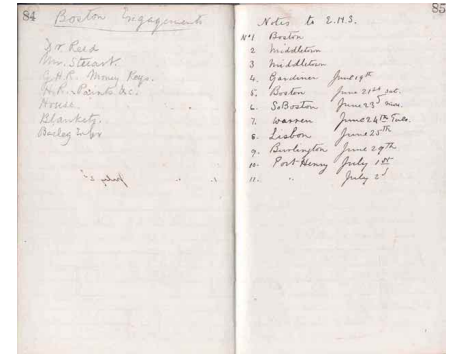 84
Boston Engagements
Dr Reed
Mr. Stewart.
G.H.R. Money Keys.
H.R. Paints &c.
House.
Blankets.
85
Notes to E.M.S.
No 1 Boston
2 Middletown
3 Middletown
4. Gardiner June 19th
5. Boston June 21st Sat.
6. So Boston June 23d Mon.
7. Warren June 24th Tues.
8. Lisbon June 25th
9. Burlington June 29th
10. Port Henry July 1st
11. " July 2d